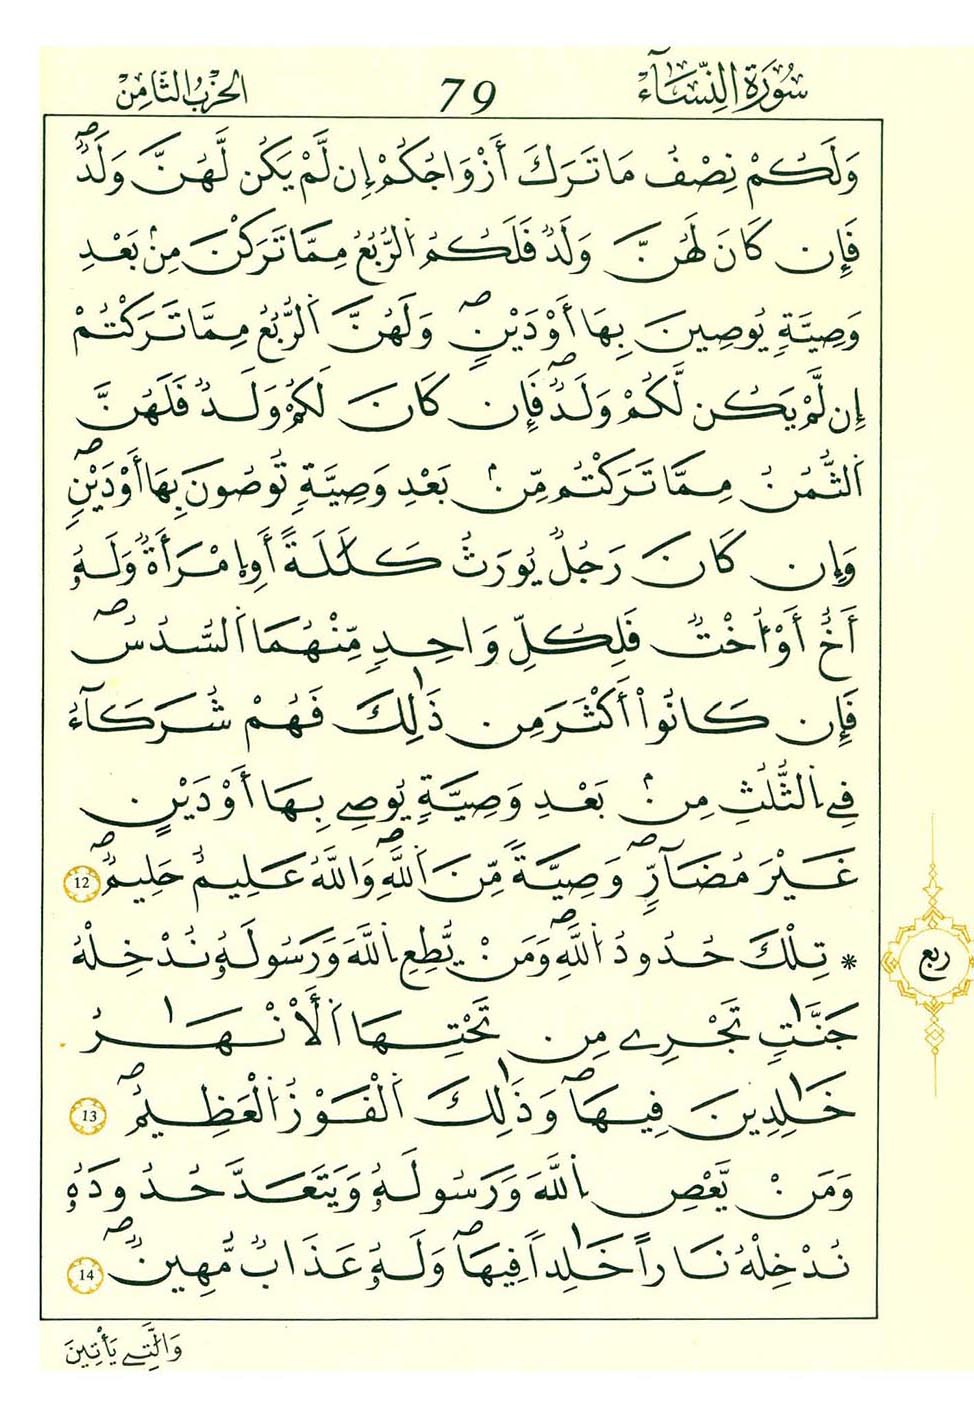 سُورَةُ النِّسَآءِ
79
الحِزْبُ الثَّامِنُ
وَلَكُمْ نِصْفُ مَا تَرَكَ أَزْوَاجُكُمْ إِن لَّمْ يَكُن لَّهُنَّ وَلَدٌ
فَإِن كَانَ لَهُنَّ وَلَدٌ فَلَكُمُ اُلرُّبُعُ مِمَّا تَرَكْنَ مِنۢ بَعْدِ
وَصِيَّةٍ يُوصِينَ بِهَا أَوْ دَيْنٍ وَلَهُنَّ اَلرُّبُعُ مِمَّا تَرَكْتُمْ
إِن لَّمْ يَكُن لَّكُمْ وَلَدٌ فَإِن كَانَ لَكُمْ وَلَدٌ فَلَهُنَّ
اَلثُّمُنُ مِمَّا تَرَكْتُم مِّنۢ بَعْدِ وَصِيَّةٍ تُوصُونَ بِهَا أَوْ دَيْنٍ
وَإِن كَانَ رَجُلٌ يُورَثُ كَلَٰلَةً أَوِ اِمْرَأَةٌ وَلَهُۥ
أَخٌ أَوْ أُخْتٌ فَلِكُلِّ وَاحِدٍ مِّنْهُمَا اَلسُّدُسُ
فَإِن كَانُواْ أَكْثَرَ مِن ذَٰلِكَ فَهُمْ شُرَكَآءُ
فِے اِلثُّلُثِ مِنۢ بَعْدِ وَصِيَّةٍ يُوصِے بِهَا أَوْ دَيْنٍ
غَيْرَ مُضَآرٍّ وَصِيَّةً مِّنَ اَللَّهِ وَاللَّهُ عَلِيمٌ حَلِيمٌ 12
* تِلْكَ حُدُودُ اُللَّهِ وَمَنْ يُّطِعِ اِللَّهَ وَرَسُولَهُۥ نُدْخِلْهُ
جَنَّٰتٍ تَجْرِے مِن تَحْتِهَا اَلْأَنْهَٰرُ
خَٰلِدِينَ فِيهَا وَذَٰلِكَ اَلْفَوْزُ اُلْعَظِيمُ 13
وَمَنْ يَّعْصِ اِللَّهَ وَرَسُولَهُۥ وَيَتَعَدَّ حُدُودَهُۥ
نُدْخِلْهُ نَاراً خَٰلِداً فِيهَا وَلَهُۥ عَذَابٌ مُّهِينٌ 14
ربع
وَالَّٰتِے يَأْتِينَ